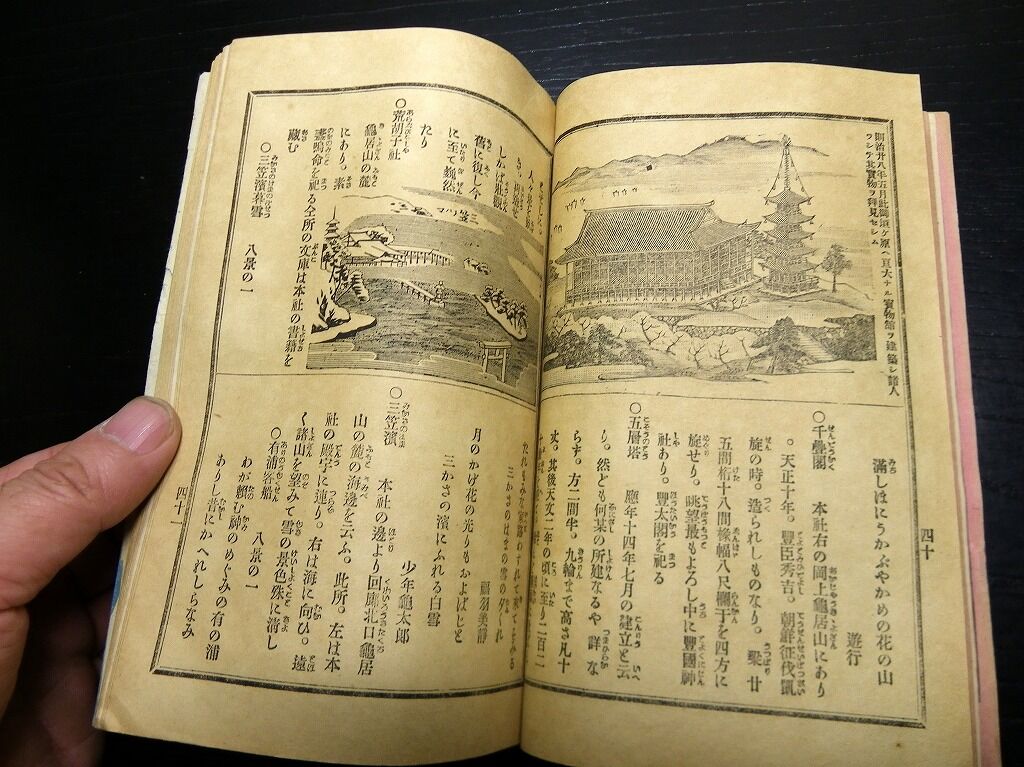 四十
明治廿八年五月此御須ヶ原ヘ亘大ナル寳物館ヲ建築シ諸人
ヲシテ其寳物ヲ拝見セシム
遊行
満しほにうかぶやかめの花の山
○千疊閣 本社右の岡上龜居山にあり
。天正十年。豐臣秀吉。朝鮮征伐凱
旋の時。造られしものなり。梁廿
五間桁十八間椽幅八尺欄干を四方に
旋せり。眺望最もよろし中に豐國神
社あり。豐太閤を祀る
○五層塔 應年十四年七月の建立と云
り。然ども何某の所建なるや詳な
らず。方二間半。九輪まで高さ凡十
丈。其後天文二年の頃に至り
しかば壯觀
舊に復し今
に至て巍然
たり
○荒胡子社
龜居山の麓
にあり。素
盞嗚命を祀る仝所の文庫は本社の書籍を
藏む
○三笠濱暮雪
八景の一
三笠ノマツ
三かさのはまの雪の夕ぐれ
福羽美靜
月のかげ花の光りもおよばじと
三かさの濱にふれる白雪
少年龜太郎
○三笠濱 本社の邊より回廊北口龜居
山の麓の海邊を云ふ。此所。左は本
社の殿宇に連り。右は海に向ひ。遠
く諸山を望みて雪の景色殊に淸し
○有浦客船 八景の一
わが頼む神のめぐみの有の浦
ありし昔にかへれしらなみ
四十一